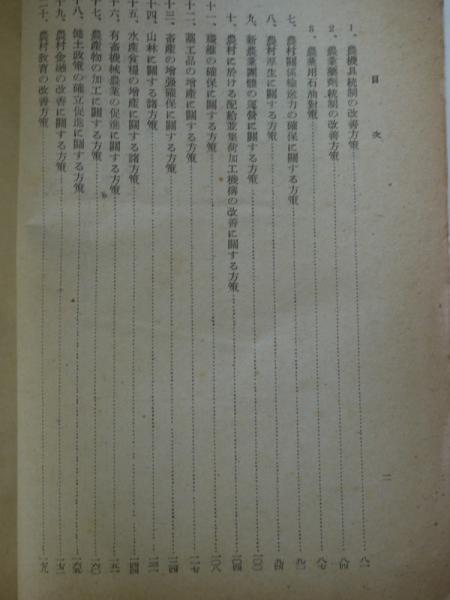 目次
1、農機具統制の改善方策
2、農業藥劑統制の改善方策
3、農業用石油對策
七、農村關係輸送力の確保に關する方策
八、農村厚生に關する方策
九、新農業團體の運營に關する方策
十、農村に於ける配給並集荷加工機構の改善に關する方策
十一、纎維の確保に關する方策
十二、藁工品の增產に關する方策
十三、畜產の增強確保に關する方策
十四、山林に關する諸方策
十五、水產食糧の增產に關する諸方策
十六、有畜機械農業の促進に關する方策
十七、農產物の加工に關する方策
十八、健土政策の確立促進に關する方策
十九、農村金融の改善に關する方策
二十、農村敎育の改善方策
二